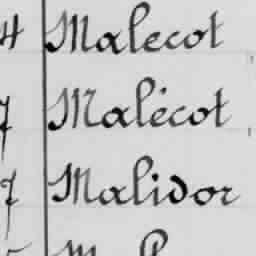 4 Malecot
7 Malécot
7 Malidor